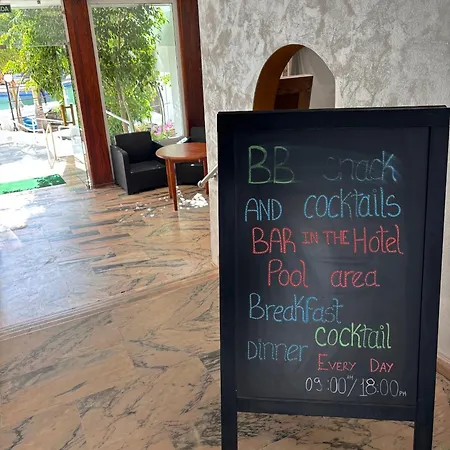 DA
BB snack
AND cocktails
BAR IN THE Hotel
Pool area
Breakfast
cocktail
Dinner
EVERY DAY
09:00AM/18:00PM